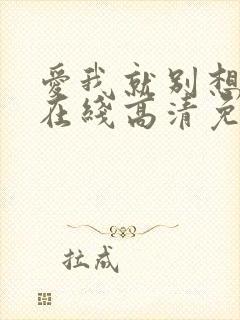 爱我就别想
在綫高清免
拉成